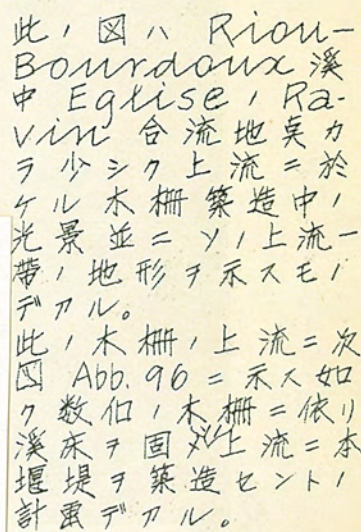 此ノ図ハ Riou-
Bourdoux 溪
中 Eglise ノ Ra-
vin 合流地奌カ
ラ少シク上流ニ於
ケル木柵築造中ノ
光景並ニソノ上流一
帯ノ地形ヲ示スモノ
デアル。
此ノ木柵ノ上流ニ次
図 Abb. 96 ニ示ス如
ク数個ノ木柵ニ依リ
溪床ヲ固メ上流ニ本
堰堤ヲ築造セントノ
計畫デアル。